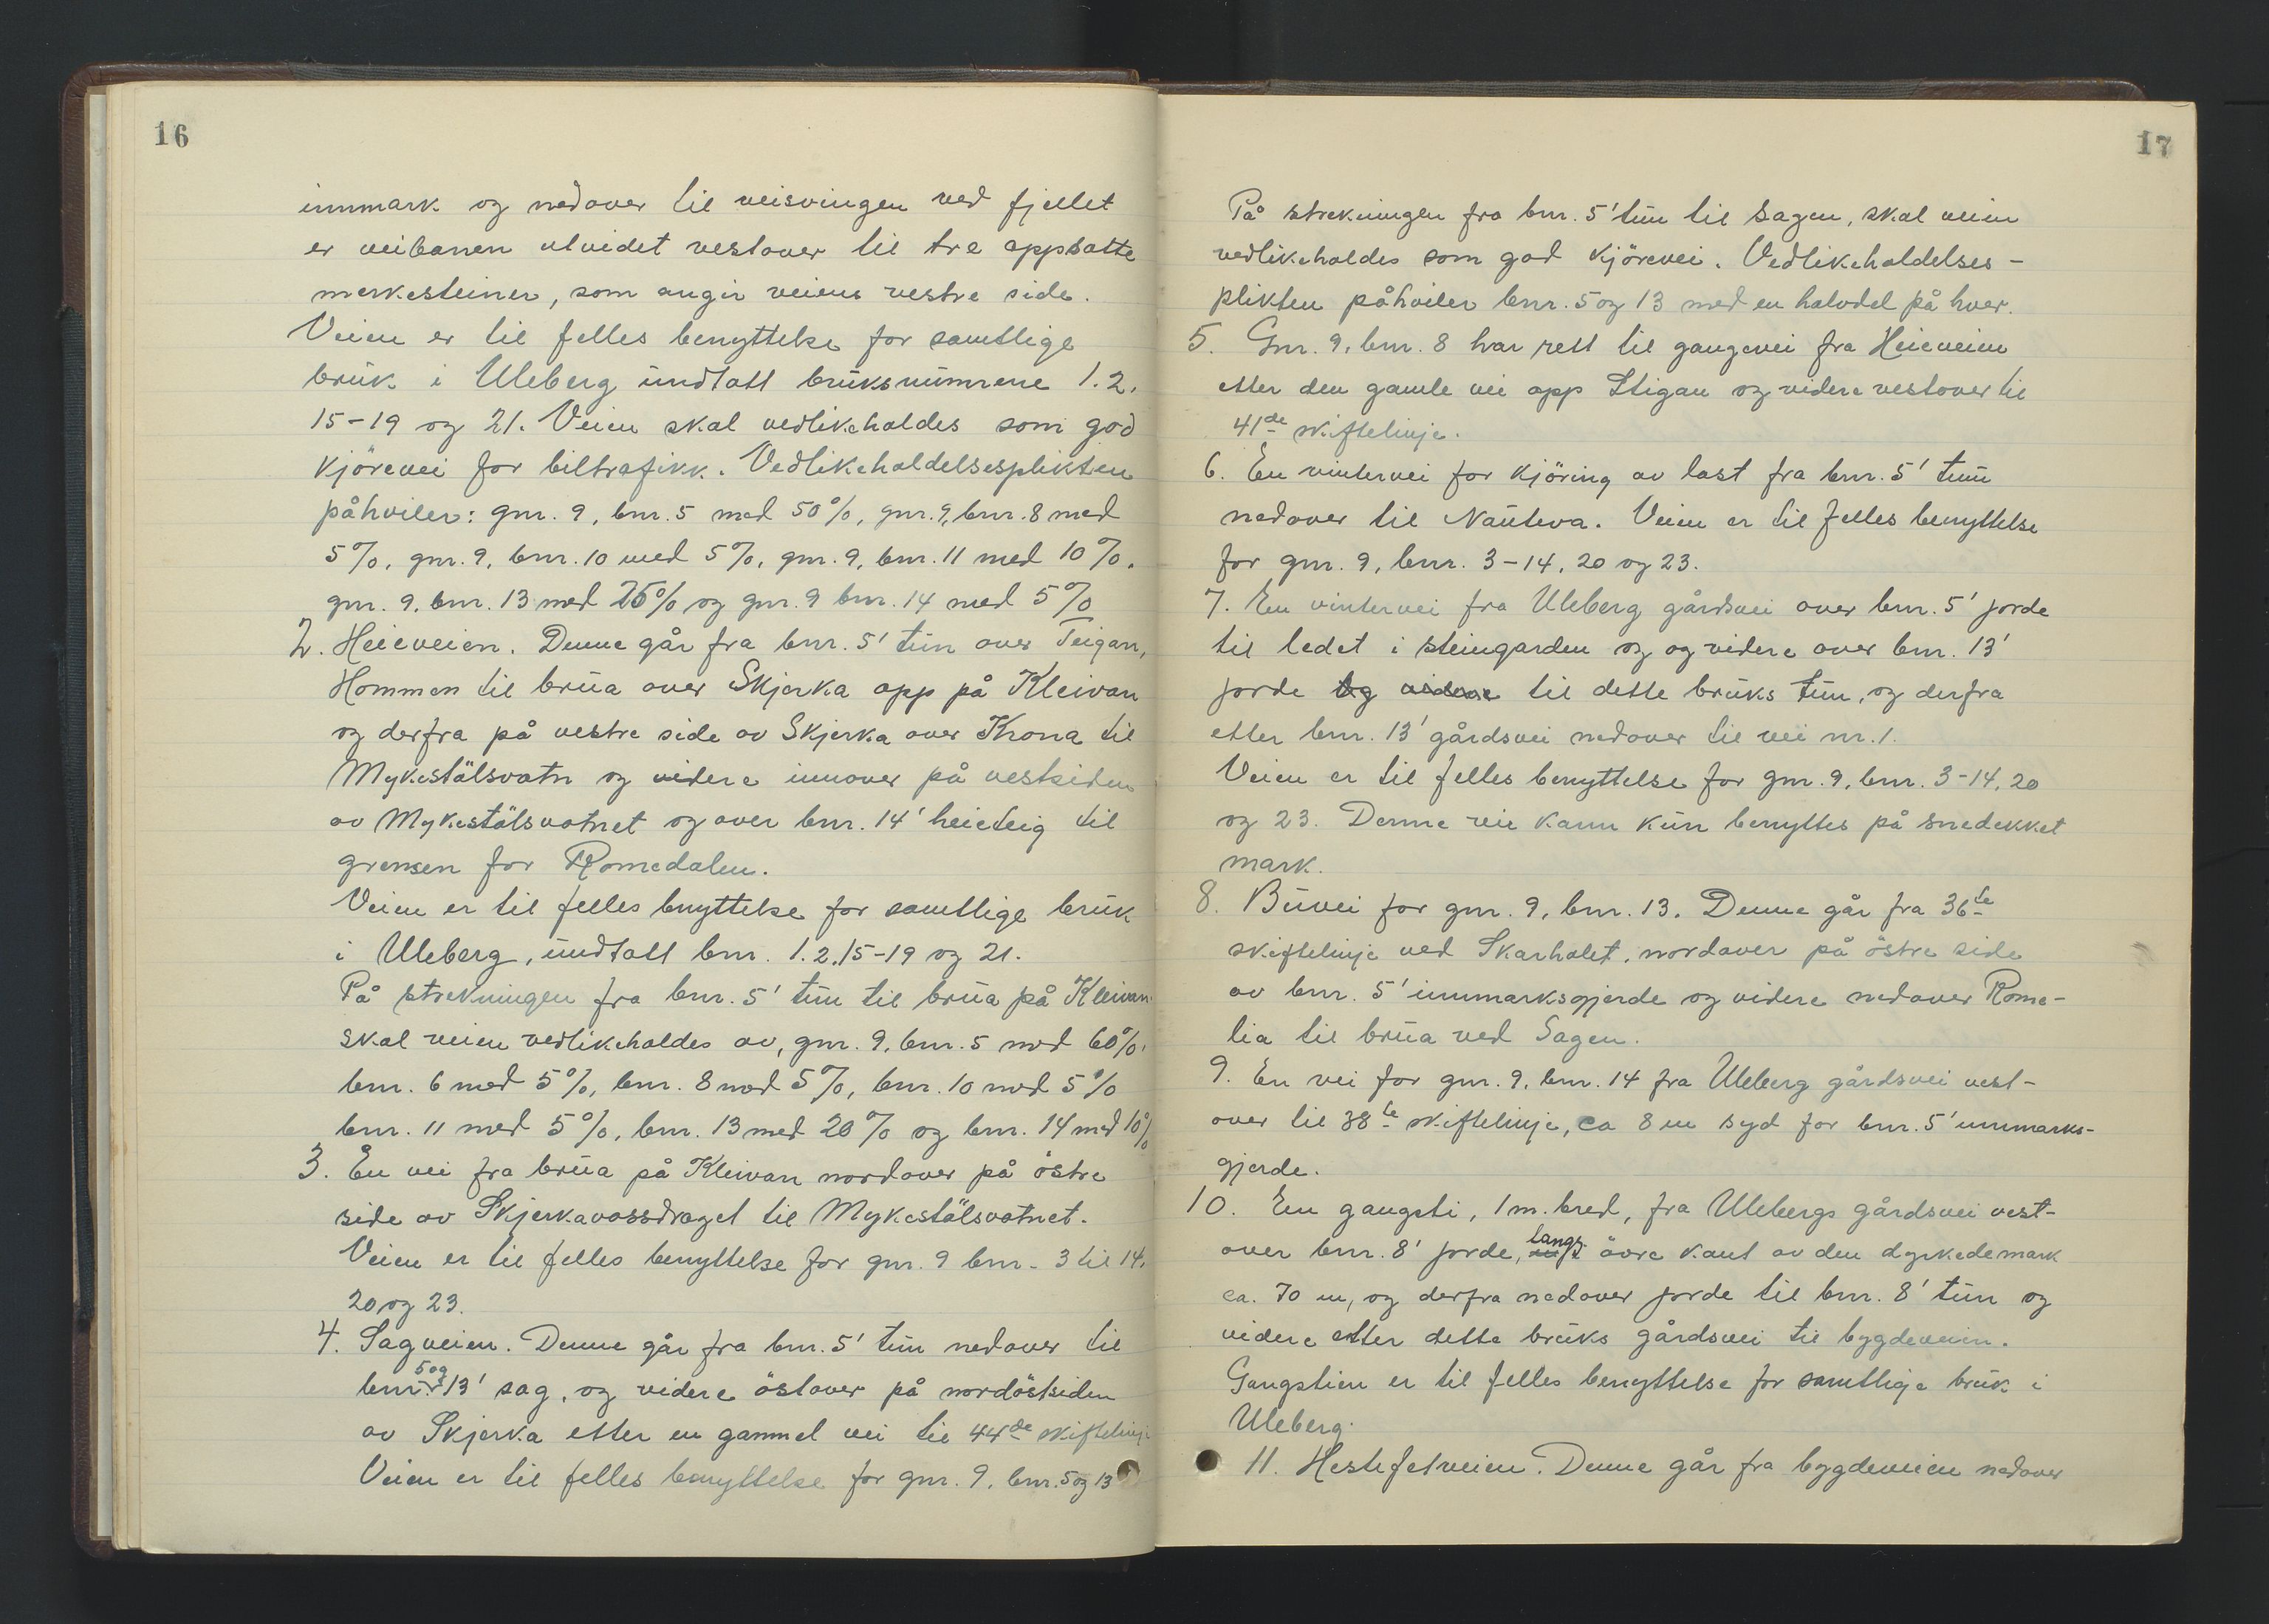 16
innmark og nedover til veisvingen ved fjellet
er veibanen utvidet vestover til tre oppsatte
merkesteiner, som angir veiens vestre side.
Veien er til felles benyttelse for samtlige
bruk i Uleberg undtatt bruksnumrene 1.2.
15-19 og 21. Veien skal vedlikeholdes som god
kjörevei for biltrafikk. Vedlikeholdelsesplikten
påhviler: gnr. 9, bnr. 5 med 50%, gnr. 9, bnr. 8 med
5%, gnr. 9, bnr. 10 med 5%, gnr. 9, bnr. 11 med 10%,
gnr. 9, bnr. 13 med 25% og gnr. 9 bnr. 14 med 5%
2. Heieveien. Denne går fra bnr. 5' tun over Teigan,
Hommen til brua over Skjerka opp på Kleivan
og derfra på vestre side av Skjerka over Krona til
Mykestölsvatn og videre innover på vestsiden
av Mykestölsvatnet og over bnr. 14' heieteig til
grensen for Romedalen.
Veien er til felles bnyttelse for samtlige bruk
i Uleberg, undtatt bnr. 1.2.15-19 og 21.
På strekningen fra bnr. 5' tun til brua på Kleivan
skal veien vedlikeholdes av, gnr. 9, bnr. 5 med 60%,
bnr. 6 med 5%, bnr. 8 med 5%, bnr. 10 med 5%
bnr. 11 med 5%, bnr. 13 med 20% og bnr. 14 med 10%
3. En vei fra brua på Kleivan nordover på östre
side av Skjerkavassdraget til Mykestölsvatnet.
Veien er til felles benyttelse for gnr. 9 bnr. 3 til 14,
20 og 23.
4. Sagveien. Denne går fra bnr. 5' tun nedover til
bnr. 5 og 13' sag, og videre östover på nordöstsiden
av Skjerka etter en gammel vei til 44de skiftelinje
Veien er til felles benyttelse for gnr. 9, bnr. 5 og 13
17
På strekningen fra bnr. 5' tun til Sagen, skal veien
vedlikeholdes som god kjörevei. Vedlikeholdelses-
plikten påhviler bnr. 5 og 13 med en halvdel på hver.
5. Gnr. 9, bnr. 8 har rett til gangvei fra Heieveien
etter den gamle vei opp Stigan og videre vestover til
41de skiftelinje.
6. En vintervei for kjöring av last fra bnr. 5' tun
nedover til Nauteva. Veien er til felles benyttelse
for gnr. 9, bnr. 3-14, 20 og 23.
7. En vintervei fra Uleberg gårdsvei over bnr. 5' jorde
til ledet i steingarden og og videre over bnr. 13'
jorde og videre til dette bruks tun, og derfra
etter bnr. 13' gårdsvei nedover til vei nr. 1.
Veien er til felles benyttelse for gnr. 9, bnr. 3-14, 20
og 23. Denne vei kann kun benyttes på snedekket
mark.
8. Buvei for gnr. 9, bnr. 13. Denne går fra 36te
skiftelinje ved Skarholet, nordover på östre side
av bnr. 5' innmarksgjerde og videre nedover Rome-
lia til brua ved Sagen.
9. En vei for gnr. 9, bnr. 14 fra Uleberg gårdsvei vest-
over til 38te skiftelinje, ca 8 m syd for bnr. 5' innmarks-
gjerde.
10. En gangsti, 1 m. bred, fra Ulebergs gårdsvei vest-
over bnr. 8' jorde, langs övre kant av den dyrkede mark
ca. 70 m, og derfra nedover jorde til bnr. 8' tun og
videre etter dette bruks gårdsvei til bygdeveien.
Gangstien er til felles benyttelse for samtlige bruk i
Uleberg.
11. Hestefetveien. Denne går fra bygdeveien nedover